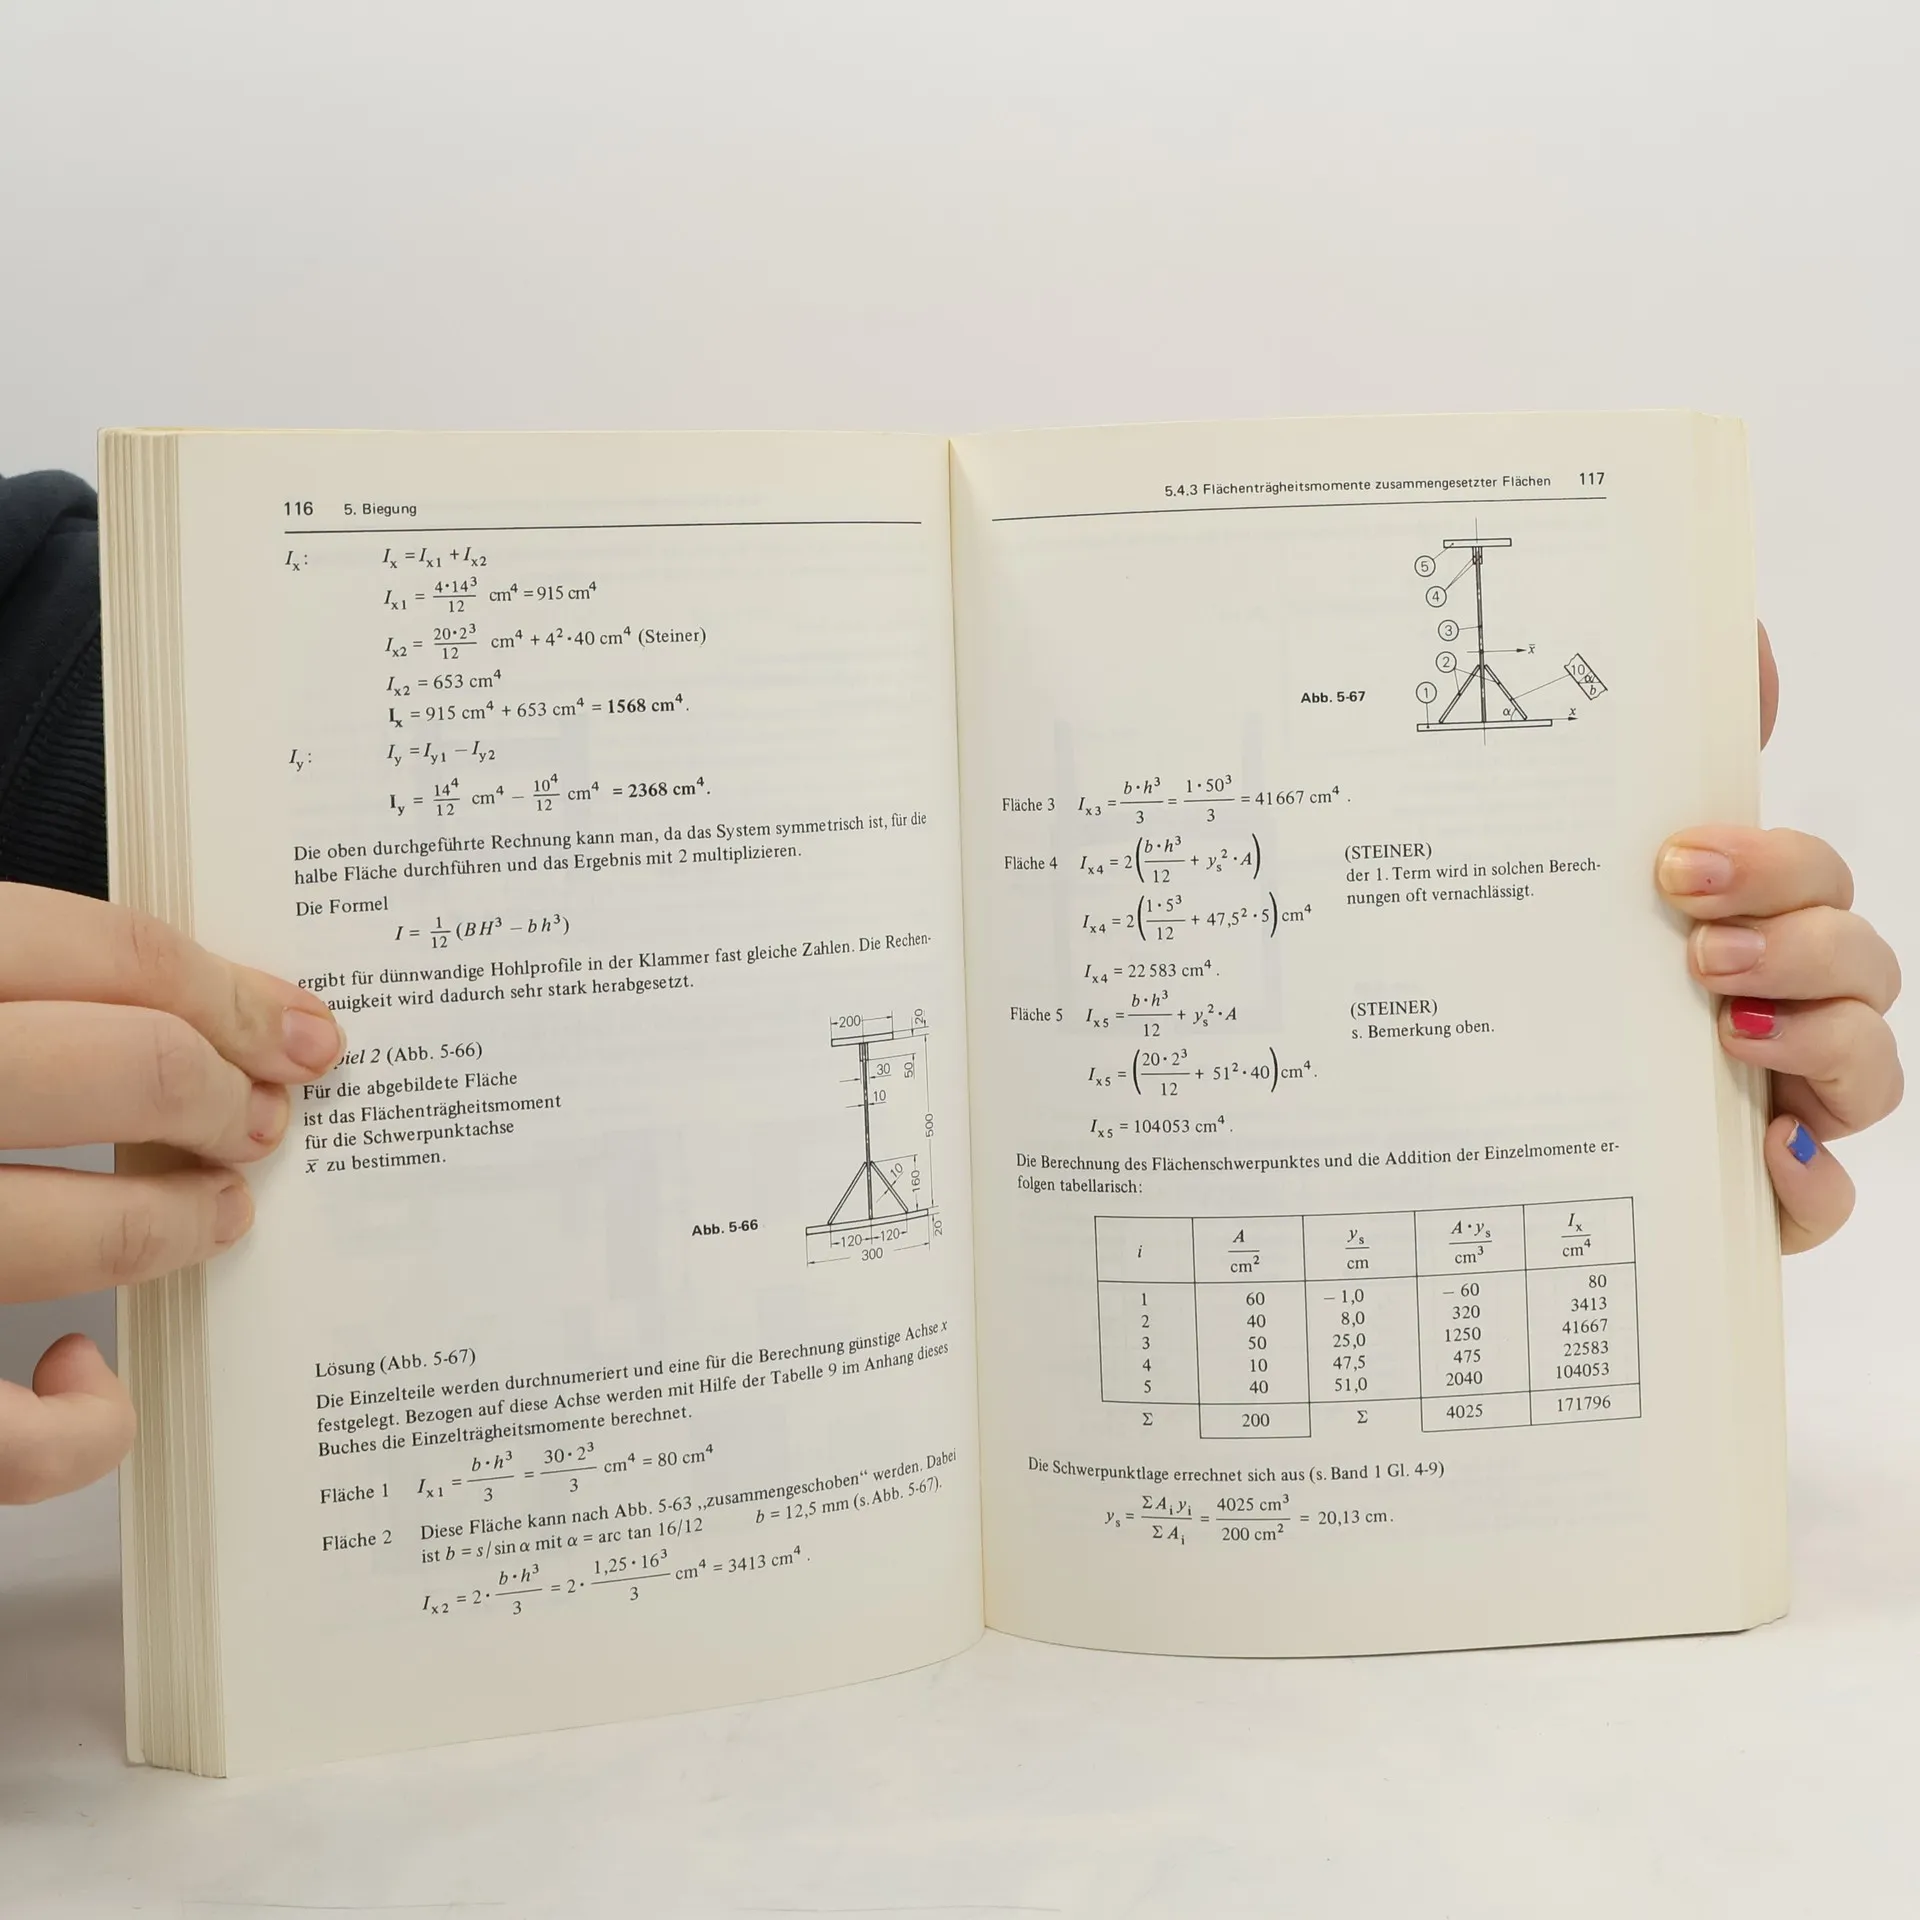 116 5. Biegung
Iₓ: Iₓ = Iₓ₁ + Iₓ₂
Iₓ₁ = 4·14³/12 cm⁴ = 915 cm⁴
Iₓ₂ = 20·2³/12 cm⁴ + 4²·40 cm⁴ (Steiner)
Iₓ₂ = 653 cm⁴
Iₓ = 915 cm⁴ + 653 cm⁴ = 1568 cm⁴.
I_y: I_y = I_y1 − I_y2
I_y = 14⁴/12 cm⁴ − 10⁴/12 cm⁴ = 2368 cm⁴.
Die oben durchgeführte Rechnung kann man, da das System symmetrisch ist, für die
halbe Fläche durchführen und das Ergebnis mit 2 multiplizieren.
Die Formel
I = 1/12 (BH³ − bh³)
ergibt für dünnwandige Hohlprofile in der Klammer fast gleiche Zahlen. Die Rechen-
auigkeit wird dadurch sehr stark herabgesetzt.
iel 2 (Abb. 5-66)
Für die abgebildete Fläche
ist das Flächenträgheitsmoment
für die Schwerpunktachse
x̄ zu bestimmen.
200
20
30
50
10
500
10
160
120 120
20
300
Abb. 5-66
Lösung (Abb. 5-67)
Die Einzelteile werden durchnumeriert und eine für die Berechnung günstige Achse x
festgelegt. Bezogen auf diese Achse werden mit Hilfe der Tabelle 9 im Anhang dieses
Buches die Einzelträgheitsmomente berechnet.
Fläche 1 Iₓ₁ = b·h³/3 = 30·2³/3 cm⁴ = 80 cm⁴
Fläche 2 Diese Fläche kann nach Abb. 5-63 „zusammengeschoben“ werden. Dabei
ist b = s/sin α mit α = arc tan 16/12 b = 12,5 mm (s. Abb. 5-67).
Iₓ₂ = 2· b·h³/3 = 2· 1,25·16³/3 cm⁴ = 3413 cm⁴.
5.4.3 Flächenträgheitsmomente zusammengesetzter Flächen 117
5
4
3
x̄
2
10
α
b
1
α
x
Abb. 5-67
Fläche 3 Iₓ₃ = b·h³/3 = 1·50³/3 = 41667 cm⁴.
Fläche 4 Iₓ₄ = 2(b·h³/12 + yₛ²·A) (STEINER)
der 1. Term wird in solchen Berech-
nungen oft vernachlässigt.
Iₓ₄ = 2(1·5³/12 + 47,5²·5) cm⁴
Iₓ₄ = 22 583 cm⁴.
Fläche 5 Iₓ₅ = b·h³/12 + yₛ²·A (STEINER)
s. Bemerkung oben.
Iₓ₅ = (20·2³/12 + 51²·40) cm⁴.
Iₓ₅ = 104053 cm⁴.
Die Berechnung des Flächenschwerpunktes und die Addition der Einzelmomente er-
folgen tabellarisch:
i A/cm² yₛ/cm A·yₛ/cm³ Iₓ/cm⁴
1 60 − 1,0 − 60 80
2 40 8,0 320 3413
3 50 25,0 1250 41667
4 10 47,5 475 22583
5 40 51,0 2040 104053
Σ 200 Σ 4025 171796
Die Schwerpunktlage errechnet sich aus (s. Band 1 Gl. 4-9)
yₛ = ΣAᵢyᵢ/ΣAᵢ = 4025 cm³/200 cm² = 20,13 cm.